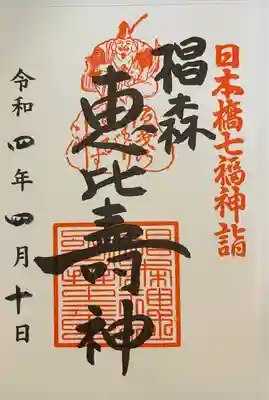 日本橋七福神詣
椙森
恵比壽神
令和四年四月十日